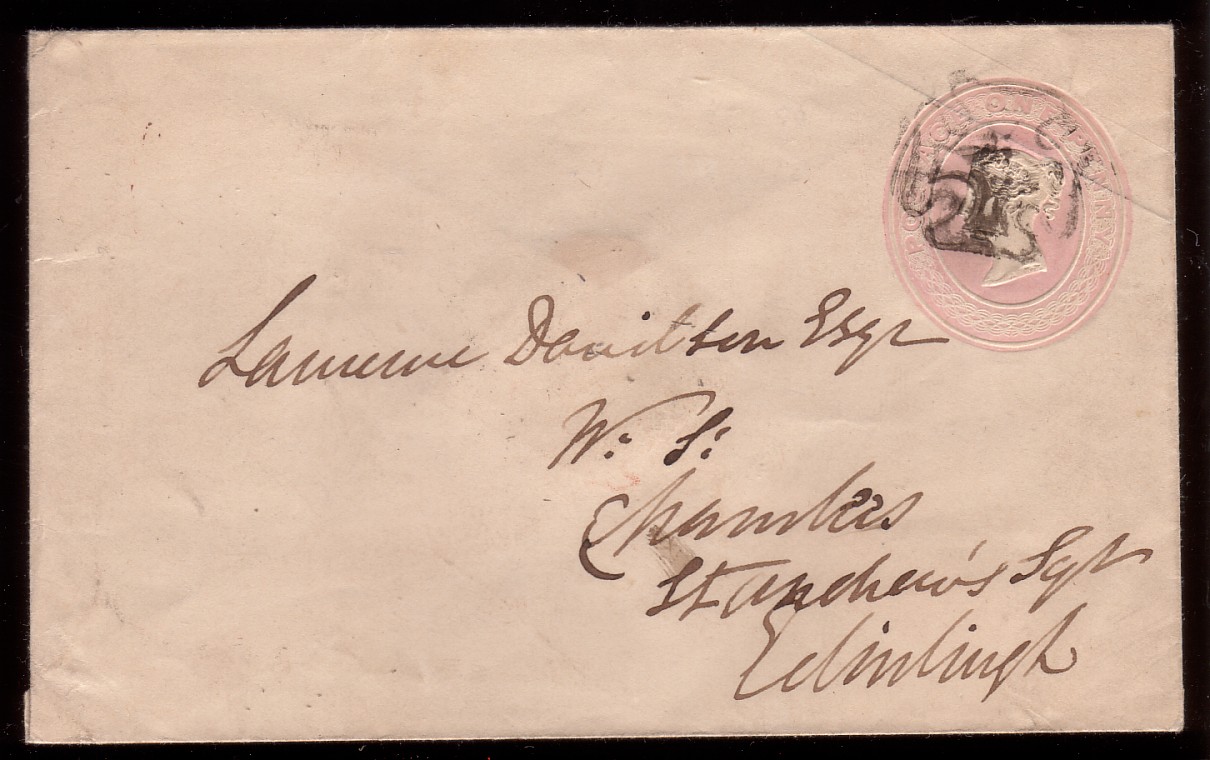 POSTAGE ONE PENNY
Lawrence Davidson Esqr
W. S.
Chambers
St Andrew's Sqr
Edinburgh